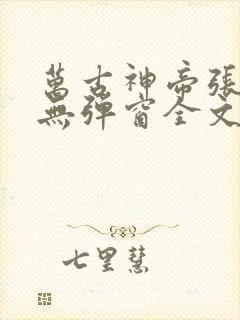 萬古神帝張
無彈窗全文
七里慧